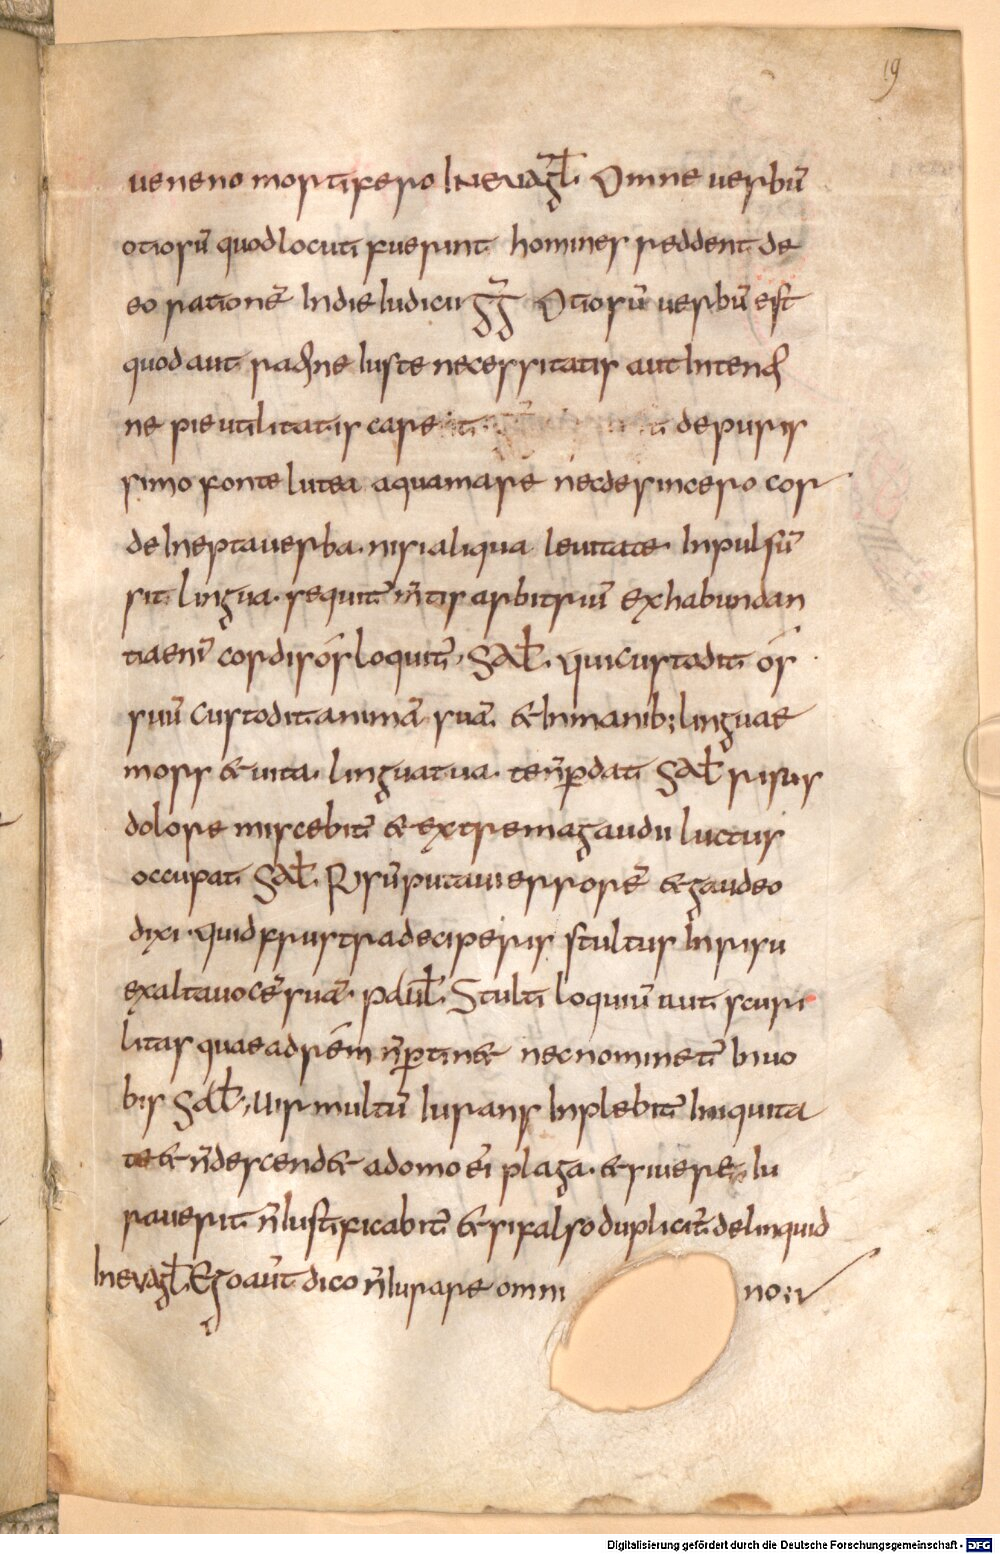 19
ueneno mortifero In euāgl. Omne uerbū
otiosū quod locuti fuerint homines reddent de
eo rationē In die Iudicii GḠ Otiosū uerbū est
quod aut ratione Iuste necessitatis aut Intentio
ne pie utilitatis caret de puris
simo fonte lutea aqua manare nec de sincero cor
de Inepta uerba. nisi aliqua leuitate Inpulsū
sit lingua. sequit̄ m̄tis arbitriū ex habundan
tia enī cordis ōs loquit̄. SAL. Qui custodit ōs
suū custodit animā suā. & In manib; linguae
mors & uita. lingua tua. te n̄ perdat SAL risus
dolore miscebit̄ & extrema gaudii luctus
occupat SAL. Risū putaui errorē & gaudeo
dixi. quid frustra deciperis stultus In risu
exaltauocē suā. PAUL. Stulti loquiū aut scurri
litas quae ad rēm n̄ pertin& nec nominet̄ In uo
bis SAL. Uir multū Iurans Inplebit̄ Iniquita
te & n̄ descend& a domo eī plaga. & si uere Iu
rauerit n̄ Iustificabit̄ & si falso duplicit̄ delinquid
In euāgl. Ego aūt dico n̄ Iurare omni no;
Digitalisierung gefördert durch die Deutsche Forschungsgemeinschaft - DFG